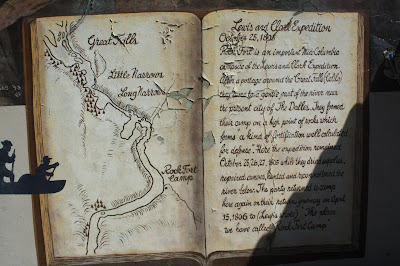 Great Falls
Little Narrows
Long Narrows
Rock Fort
Camp
Lewis and Clark Expedition
October 25, 1805
Rock Fort is an important Mid Columbia
campsite of the Lewis and Clark Expedition
After a portage around the Great Falls (Celilo)
they came to a gentle part of the river near
the present city of The Dalles. They formed
their camp on a high point of rocks which
forms a kind of fortification well calculated
for defense". Here the expedition remained
October 25, 26, 27, 1805 while they dried supplies,
repaired canoes, hunted and reconnoitered the
river below. The party returned to camp
here again on their return journey on April
15, 1806 to (Lewis wrote) "The place
we have called Rock Fort Camp"